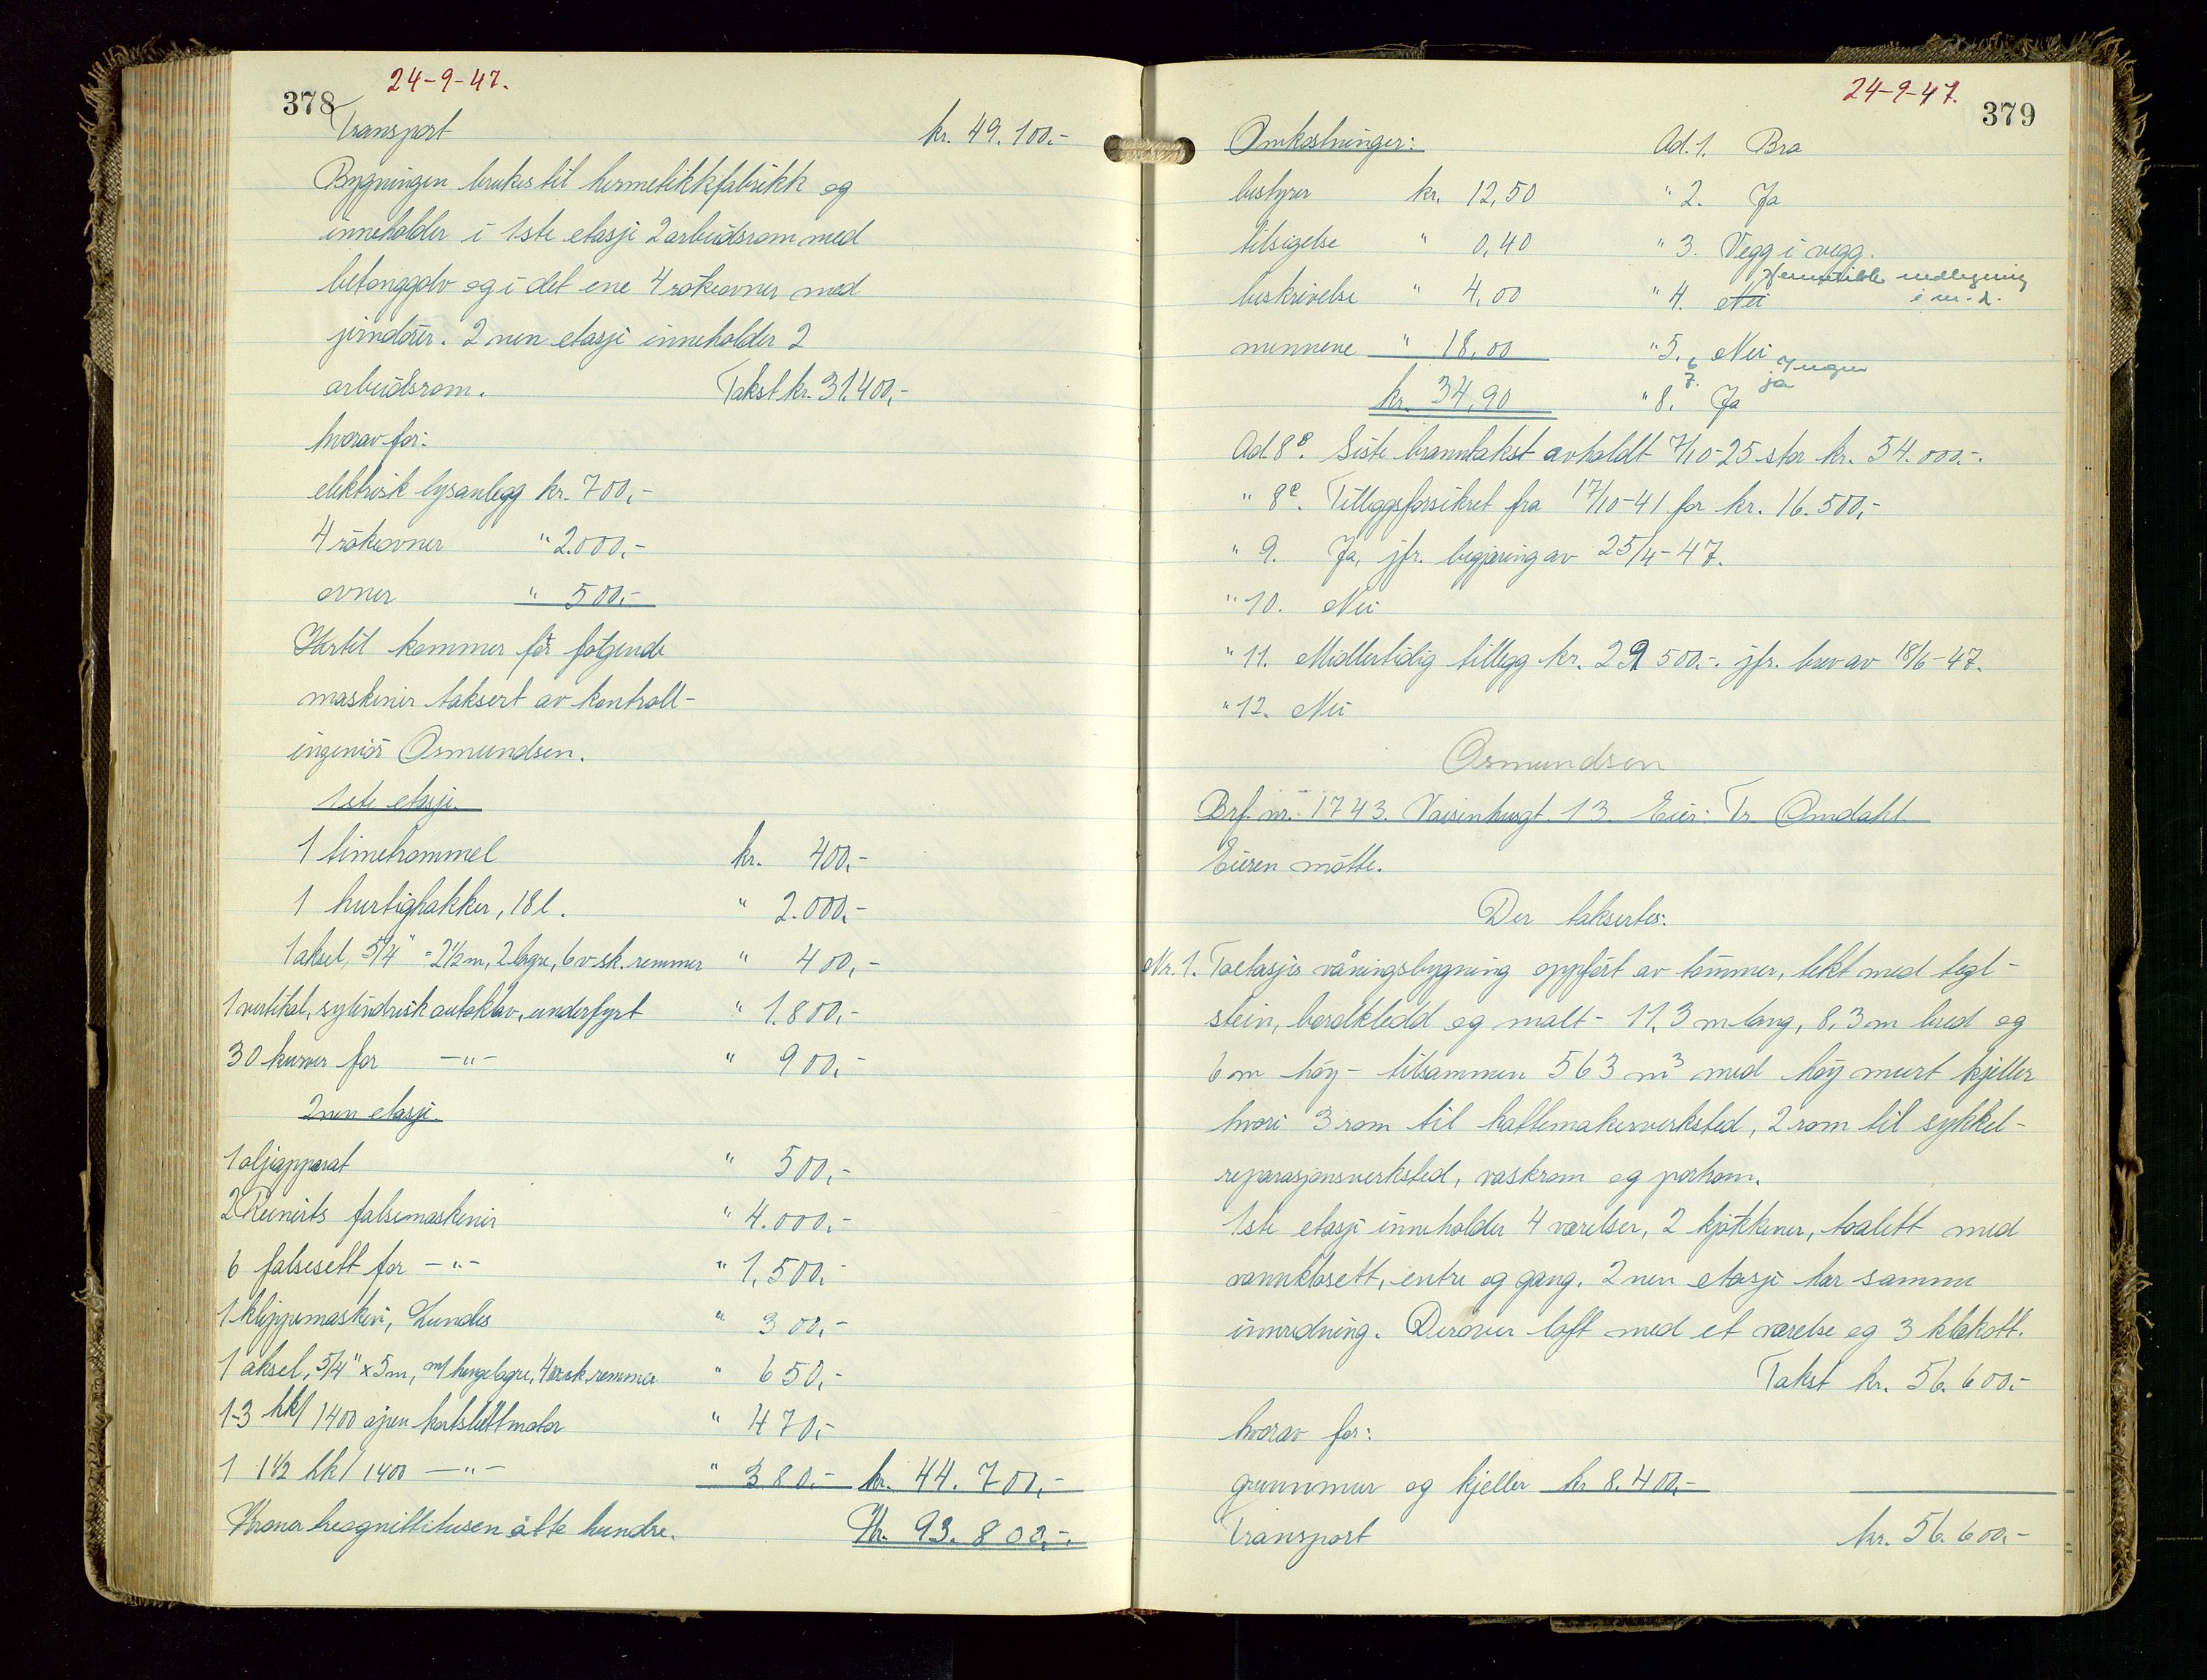 24-9-47.
378
Transport kr. 49.100.-
Bygningen brukes til hermetikkfabrikk og
inneholder i 1ste etasje 2 arbeidsrom med
betonggolv og i det ene 4 røkeovner med
jerndører. 2nen etasje inneholder 2
arbeidsrom. Takst kr. 31.400,-
hvorav for:
elektrisk lysanlegg kr. 700,-
4 røkeovner " 2.000,-
ovner " 500,-
Hertil kommer for følgende
maskiner taksert av kontroll-
ingeniør Osmundsen.
1ste etasje.
1 limetrommel kr. 400,-
1 hurtighakker, 18 l. " 2.000,-
1 aksel, 5/4" = 2½ m, 2 lagre, 6 v sk. remmer " 400,-
1 vertikal, sylindrisk autoklav, underfyrt " 1.800,-
30 kurver for -"- " 900,-
2nen etasje.
1 oljeapparat " 500,-
2 Reinerts falsemaskiner " 4.000,-
6 falsesett for -"- " 1.500,-
1 klippemaskin, Lundes " 300,-
1 aksel, 5/4" x 5 m, m/ hengelagre, 4 v sk. remmer " 650,-
1-3 hk/ 1400 åpen kortsluttmotor " 470,-
1 1½ hk/ 1400 -"- " 380.- kr. 44.700,-
Kroner treognittitusenåtte hundre. Kr. 93.800,-.
24-9-47.
379
Omkostninger: Ad. 1. Bra
bestyrer kr. 12,50 " 2. Ja
tilsigelse " 0,40 " 3. Vegg i vegg.
beskrivelse " 4,00 " 4. Nei Hermetikk nedlegning
i nr. 2.
mennene " 18,00 " 5. Nei
6 Ingen
7. ja
kr. 34,90 " 8. Ja
Ad. 8 B. Siste branntakst avholdt 7/10-25 stor kr. 54.000.-.
" 8 C. Tilleggsforsikret fra 17/10-41 for kr. 16.500,-
" 9. Ja, jfr. begjæring av 25/4-47.
" 10. Nei
" 11. Midlertidig tillegg kr. 29 500.-. jfr. brev av 18/6-47.
" 12. Nei
Osmundsen
Brf. nr. 1743. Vaisenhusgt. 13. Eier: Tr. Omdahl.
Eieren møtte.
Der takseres:
Nr. 1. Toetasjes våningsbygning oppført av tømmer, tekt med tegl-
stein, bordkledd og malt - 11,3 m lang, 8,3 m bred og
6 m høy - tilsammen 563 m³ med høy murt kjeller
hvori 3 rom til hattemakerverksted, 2 rom til sykkel-
reparasjonsverksted, vaskrom og portrom.
1ste etasje inneholder 4 værelser, 2 kjøkkener, toalett med
vannklosett, entre og gang. 2nen etasje har samme
innredning. Derover loft med et værelse og 3 klekott.
Takst kr. 56.600,-
hvorav for:
grunnmur og kjeller kr 8.400,-
Transport kr. 56.600,-